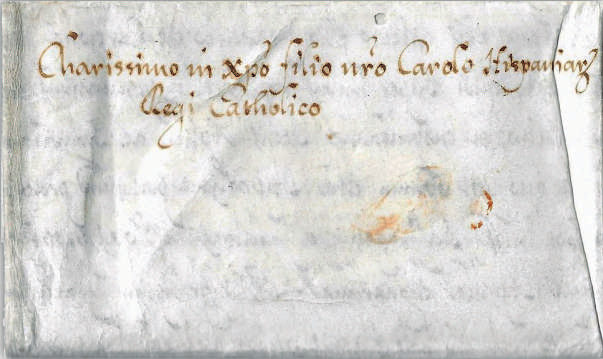 Charissimo in xpo filio nro Carolo Hispaniarꝝ
Regi Catholico